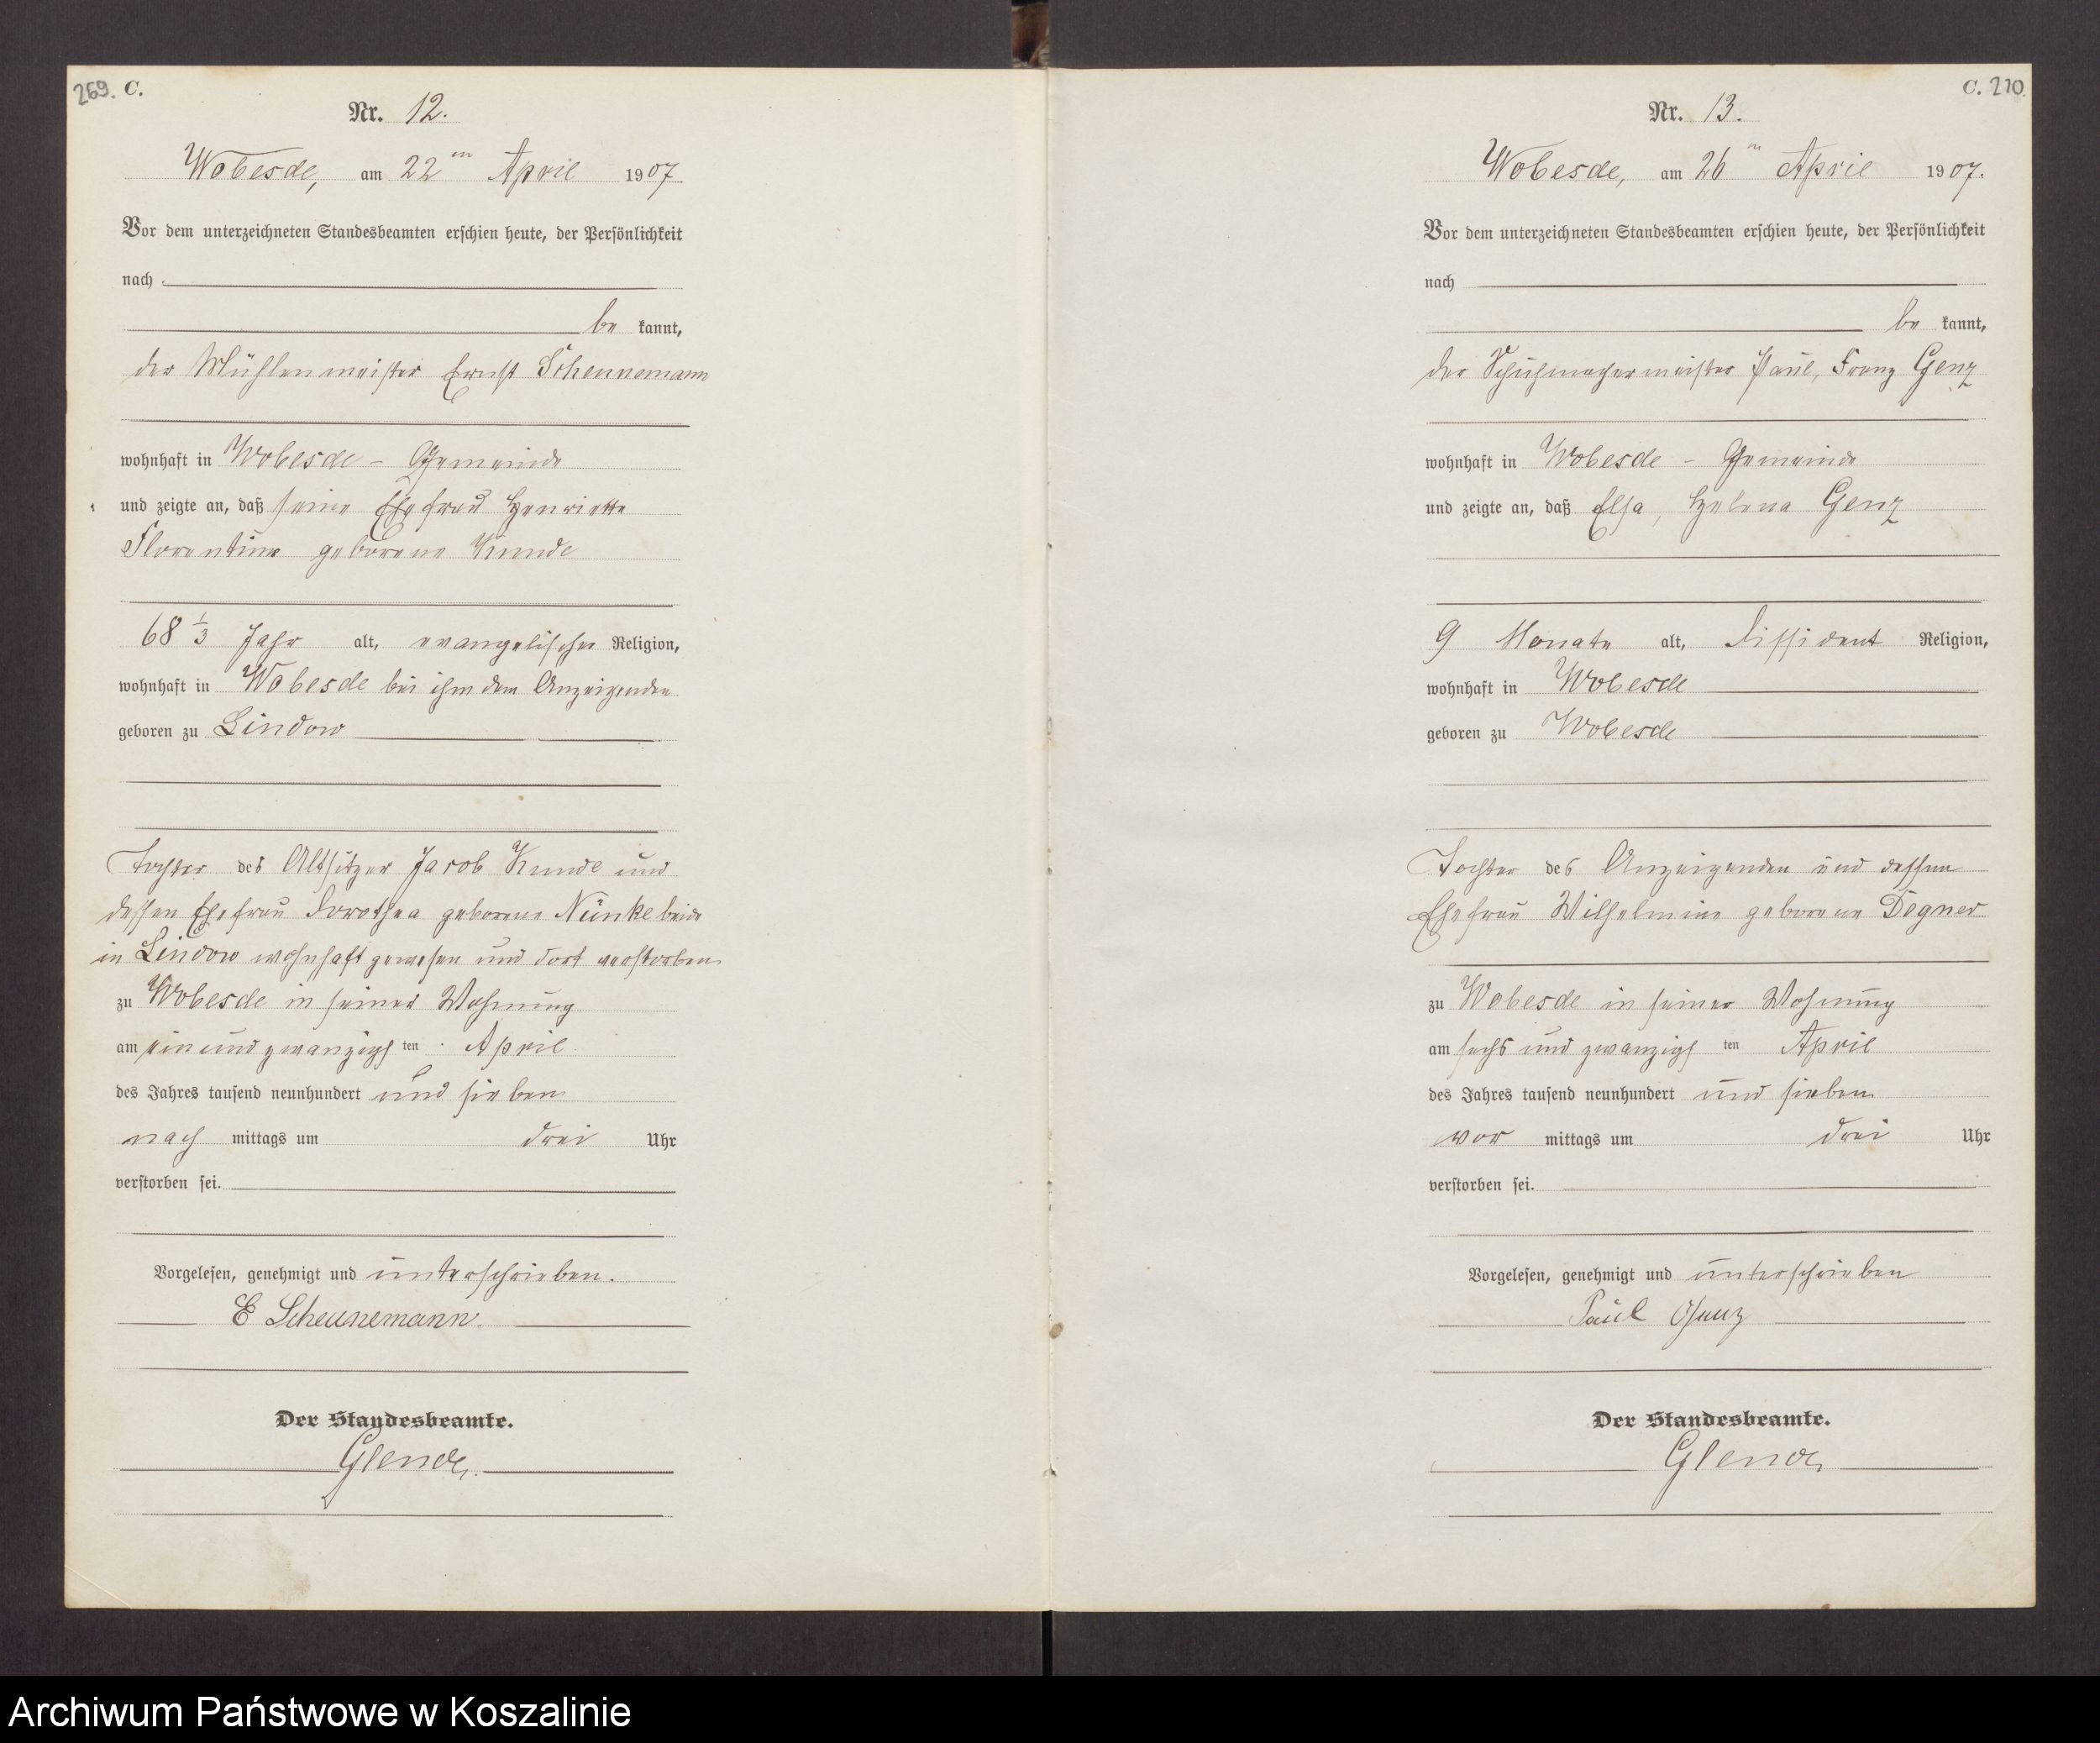 269. C.
Nr. 12.
Wobesde, am 22ten April 1907
Vor dem unterzeichneten Standesbeamten erschien heute, der Persönlichkeit
nach
be kannt,
der Mühlenmeister Ernst Scheunemann
wohnhaft in Wobesde - Gemeinde
und zeigte an, daß seine Ehefrau Henriette
Florentine geborene Kunde
68 1/3 Jahr alt, evangelischer Religion,
wohnhaft in Wobesde bei ihm dem Anzeigenden
geboren zu Lindow
Tochter des Altsitzer Jacob Kunde und
dessen Ehefrau Dorothea geborene Nünke beide
in Lindow wohnhaft gewesen und dort verstorben
zu Wobesde in seiner Wohnung
am ein und zwanzigs ten April
des Jahres tausend neunhundert und sieben
nach mittags um drei Uhr
verstorben sei.
Vorgelesen, genehmigt und unterschrieben.
E Scheunemann.
Der Standesbeamte.
Glende.
C. 270.
Nr. 13.
Wobesde, am 26ten April 1907.
Vor dem unterzeichneten Standesbeamten erschien heute, der Persönlichkeit
nach
be kannt,
der Schuhmachermeister Paul, Franz Genz
wohnhaft in Wobesde - Gemeinde
und zeigte an, daß Elsa, Helena Genz
9 Monate alt, Dissident Religion,
wohnhaft in Wobesde
geboren zu Wobesde
Tochter des Anzeigenden und dessen
Ehefrau Wilhelmine geborene Degner
zu Wobesde in seiner Wohnung
am sechs und zwanzigs ten April
des Jahres tausend neunhundert und sieben
vor mittags um drei Uhr
verstorben sei.
Vorgelesen, genehmigt und unterschrieben
Paul Genz
Der Standesbeamte.
Glende
Archiwum Państwowe w Koszalinie